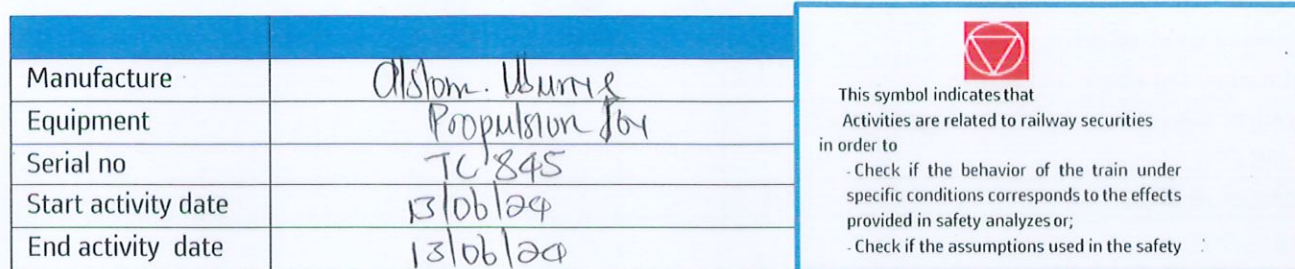 Manufacture Alstom.
Equipment Propulsion
Serial no TC 845
Start activity date 13/06/24
End activity date 13/06/24
This symbol indicates that
Activities are related to railway securities
in order to
- Check if the behavior of the train under
specific conditions corresponds to the effects
provided in safety analyzes or;
- Check if the assumptions used in the safety